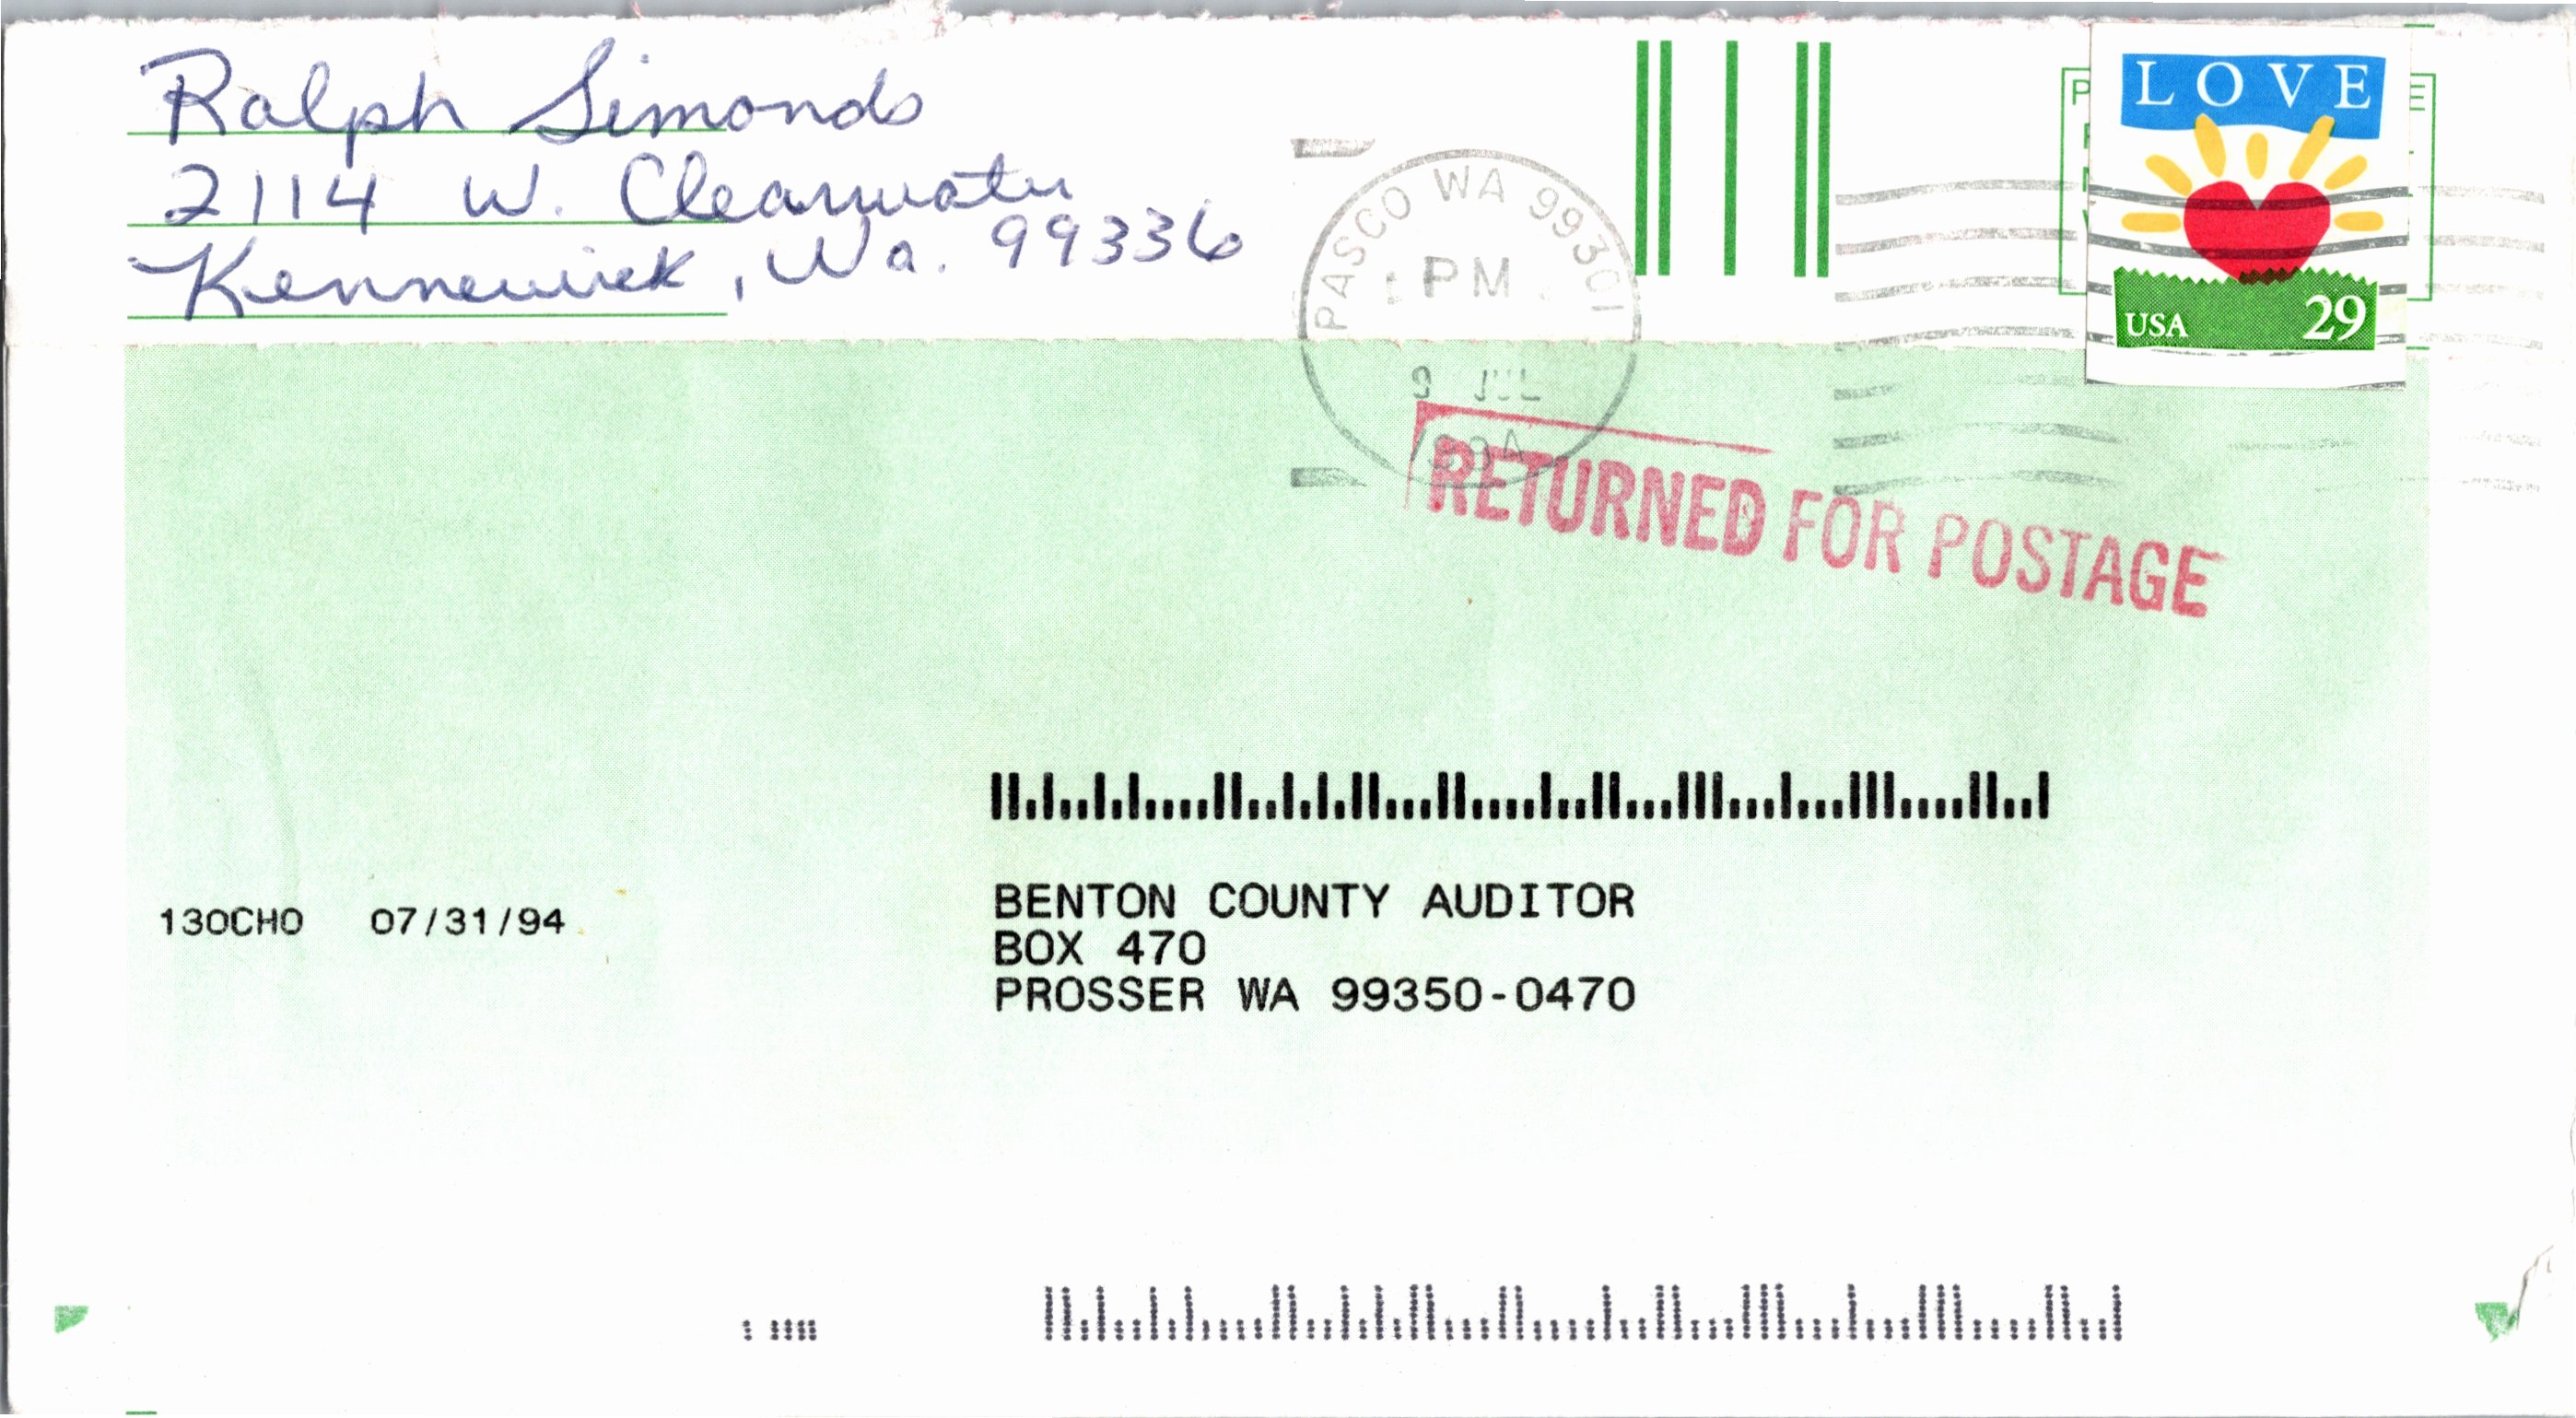 Ralph Simonds
2114 W. Clearwater
Kennewick, Wa. 99336
PASCO WA 99301
PM
9 JUL
LOVE
USA 29
RETURNED FOR POSTAGE
130CHO 07/31/94
BENTON COUNTY AUDITOR
BOX 470
PROSSER WA 99350-0470